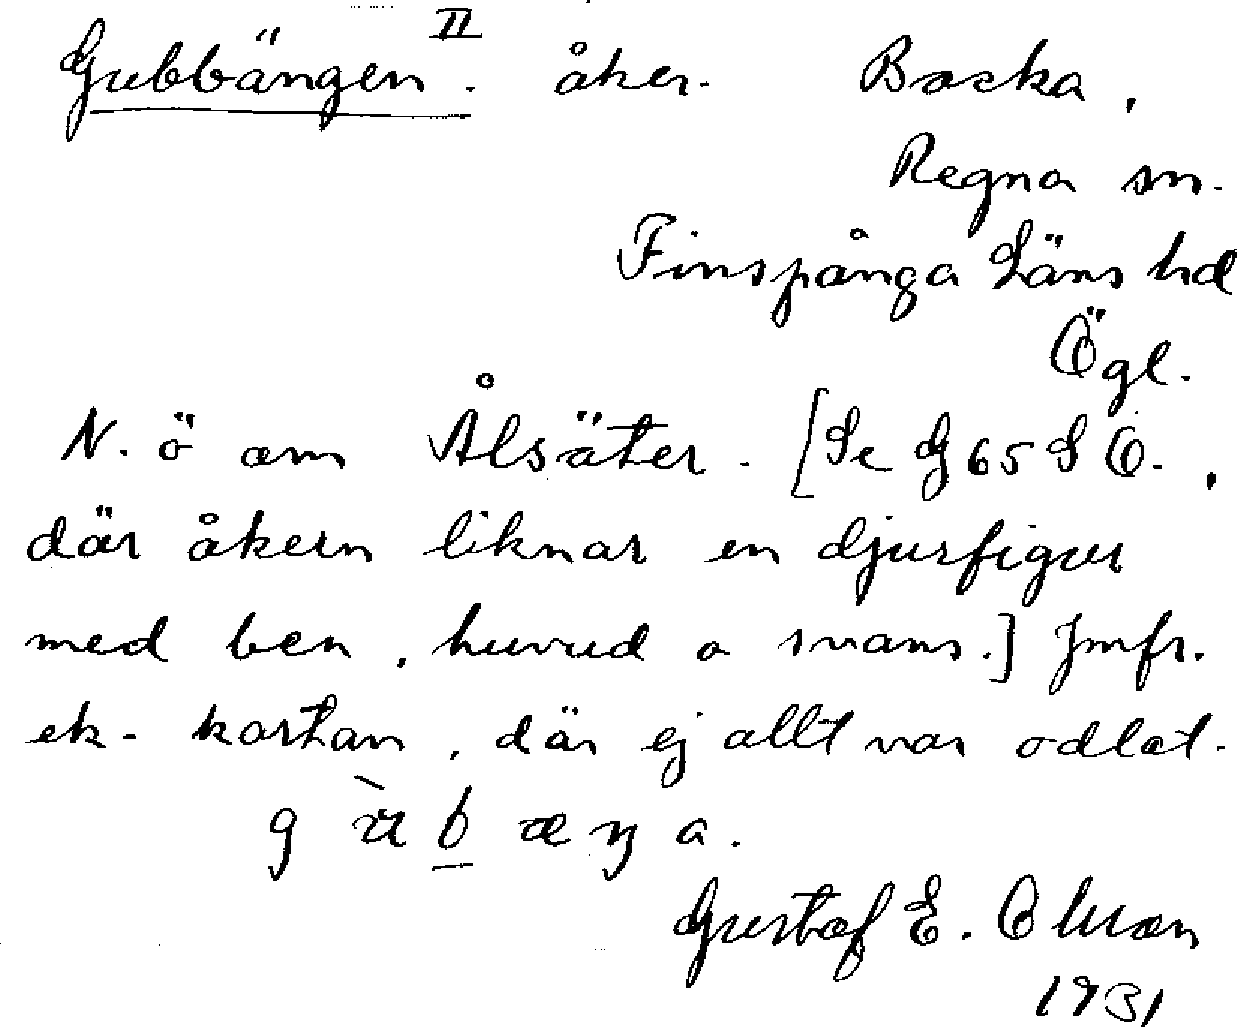 Gubbängen II. åker. Backa,
Regna sn.
Finspånga Läns hd
Ögl.
N. ö om Ålsäter. [Se G65 S Ö.,
där åkern liknar en djurfigur
med ben, huvud o svans.] Jmfr.
ek. kartan, där ej allt var odlat.
Gustaf E. Olsson
1931